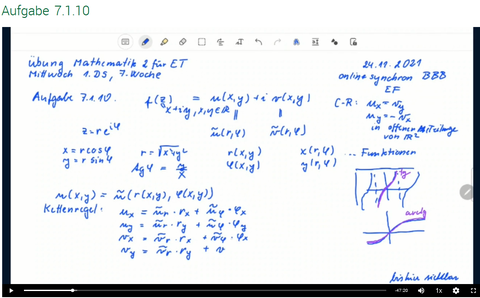 Aufgabe 7.1.10
Übung Mathematik 2 für ET
24.11.2021
Mittwoch 1.DS, 7. Woche
online synchron BBB
EF
Aufgabe 7.1.10.
f(z) = u(x,y) + i v(x,y)
x+iy, x,y∈ℝ
C-R: u_x = v_y
u_y = -v_x
in offener Teilmenge
von ℝ²
z = r e^{iφ}
ũ(r,φ) ṽ(r,φ)
x = r cos φ
y = r sin φ
r = √(x²+y²)
tg φ = y/x
r(x,y)
φ(x,y)
x(r,φ)
y(r,φ)
-- Funktionen
tg
arctg
u(x,y) = ũ(r(x,y), φ(x,y))
Kettenregel: u_x = ũ_r · r_x + ũ_φ · φ_x
u_y = ũ_r · r_y + ũ_φ · φ_y
v_x = ṽ_r · r_x + ṽ_φ · φ_x
v_y = ṽ_r · r_y + v
bis hier sichtbar
-47:20
1x